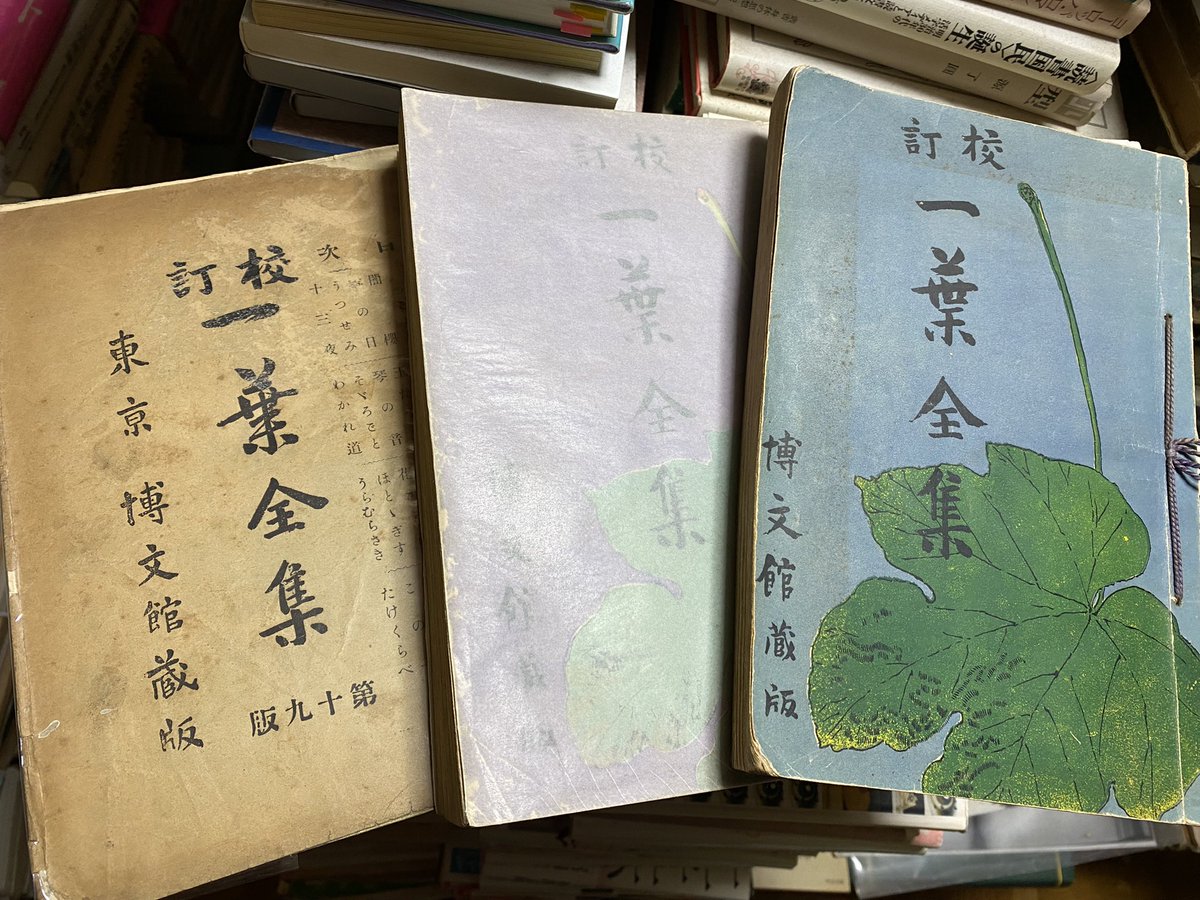 目次
琴の音
そゞろごと
ほとゝぎす
この
うつせみ
十三夜
わかれ道
うらむらさき
たけくらべ
校訂
一葉全集
東京 博文館蔵版
第十九版
校訂
一葉全集
文館蔵版
校訂
一葉全集
博文館蔵版
読書国民〉の誕生